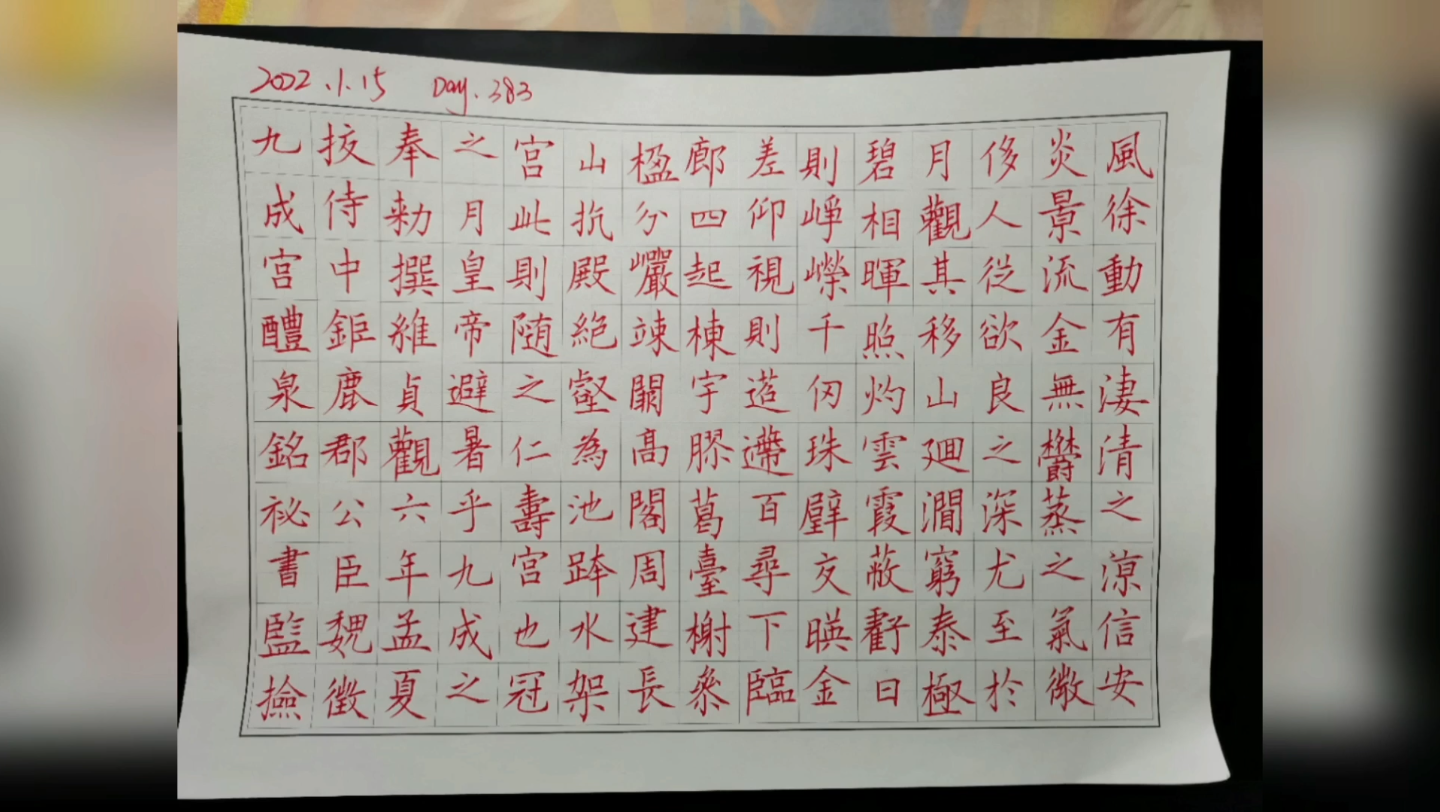 2022.1.15 Day.383
九成宫醴泉銘祕書監撿
挍侍中鉅鹿郡公臣魏徵
奉勑撰維貞觀六年孟夏
之月皇帝避暑乎九成之
宫此則随之仁壽宫也冠
山抗殿絶壑為池跨水架
楹分巗竦闕高閣周建長
廊四起棟宇膠葛臺榭叅
差仰視則迢遰百尋下臨
則崢嶸千仞珠璧交暎金
碧相暉照灼雲霞蔽虧日
月觀其移山廻澗窮泰極
侈人従欲良之深尤至於
炎景流金無欝蒸之氣微
風徐動有淒清之涼信安